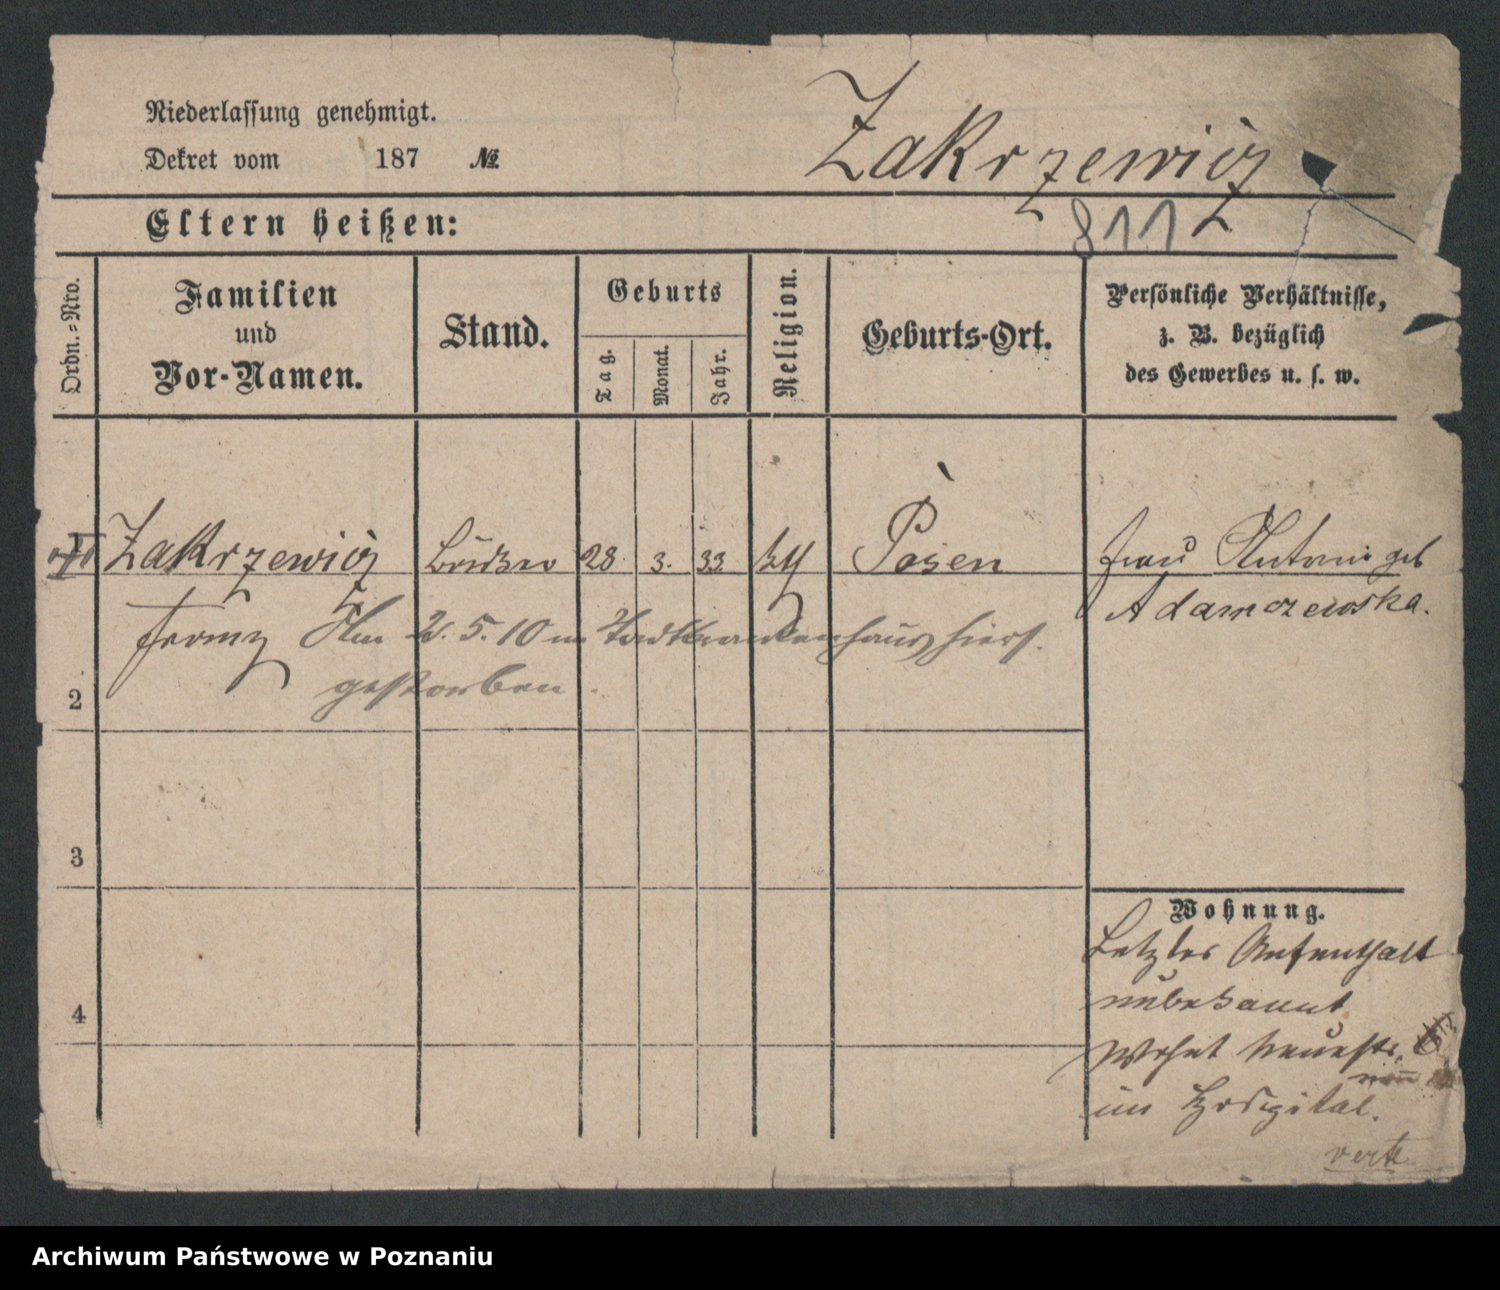 Niederlassung genehmigt.
Dekret vom 187 №
Zakrzewicz
811
Eltern heißen:
Ordn.=Nro.
Familien
und
Vor-Namen.
Stand.
Geburts
Tag.
Monat.
Jahr.
Religion.
Geburts-Ort.
Persönliche Verhältnisse,
z. B. bezüglich
des Gewerbes u. s. w.
Zakrzewicz 28. 3. 33. Posen
Franz
Am 2. 5. 10 im Stadtkrankenhaus hiers.
gestorben.
Frau Antonie geb
Adamczewska.
2
3
4
Wohnung.
Letzter Aufenthalt
unbekannt
Wohnt Neuestr.
im Hospital.
verte
Archiwum Państwowe w Poznaniu